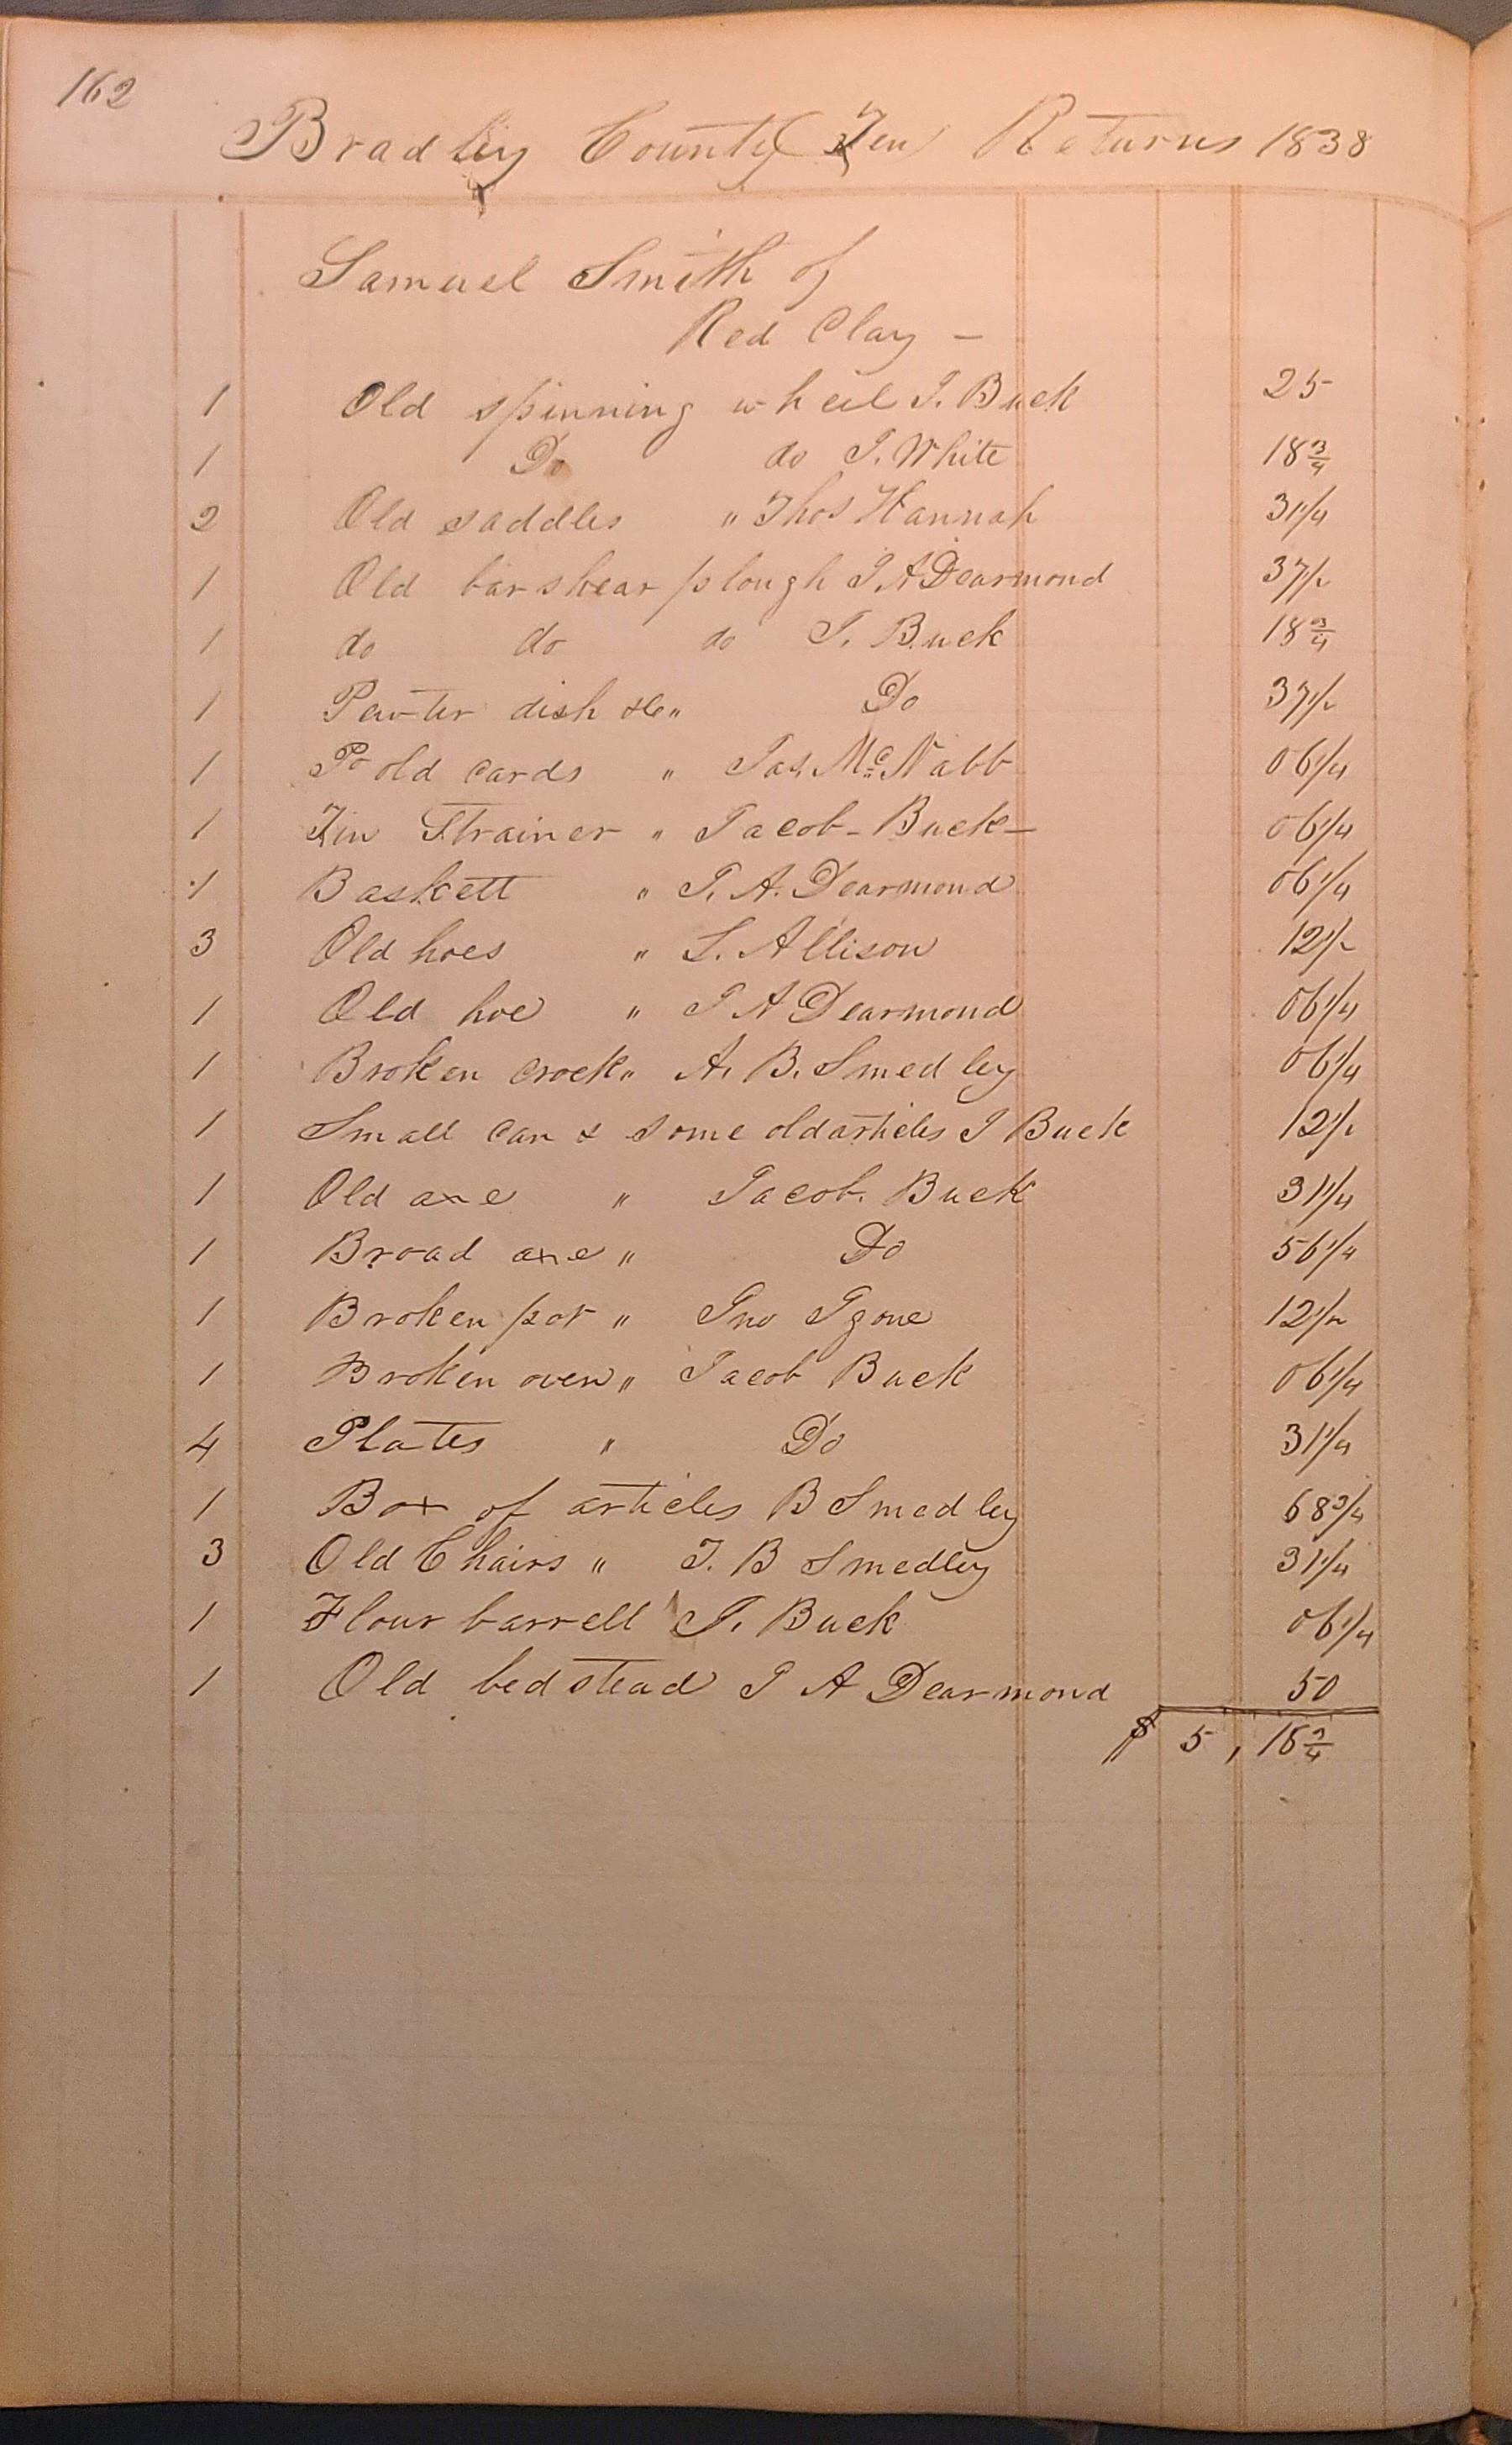 162
Bradley County Ten Returns 1838
Samuel Smith of
Red Clay —
1 Old spinning wheel J. Buck 25
1 Do do J. White 18 3/4
2 Old saddles " Thos Hannah 31 1/4
1 Old bar shear plough J. A Dearmond 37 1/2
1 do do do J. Buck 18 3/4
1 Pewter dish &c " Do 37 1/2
1 Pr old cards " Jas. McNabb 06 1/4
1 Tin Strainer " Jacob - Buck — 06 1/4
1 Baskett " J. A. Dearmond 06 1/4
3 Old hoes " L. Allison 12 1/2
1 Old hoe " J A Dearmond 06 1/4
1 Broken crock " A. B. Smedley 06 1/4
1 Small can & some old articles J Buck 12 1/2
1 Old axe " Jacob. Buck 31 1/4
1 Broad axe " Do 56 1/4
1 Broken pot " Jno Igone 12 1/2
1 Broken oven " Jacob Buck 06 1/4
4 Plates " Do 31 1/4
1 Box of articles B Smedley 68 3/4
3 Old Chairs " J. B Smedley 31 1/4
1 Flour barrell " J. Buck 06 1/4
1 Old bedstead J A Dearmond 50
$ 5, 16 3/4